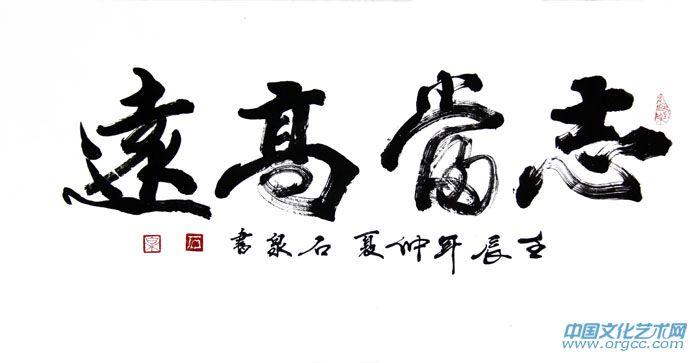 志當高遠
壬辰年仲夏 石泉書
石
泉
中国文化艺术网
www.orgcc.com